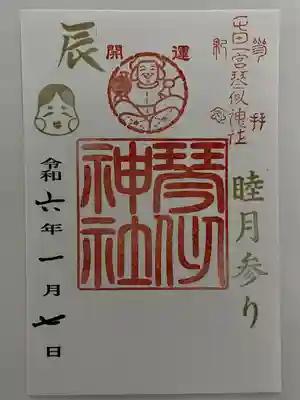 拝
一宮琴似神社
念
睦月参り
開運
琴似
神社
辰
令和六年一月七日